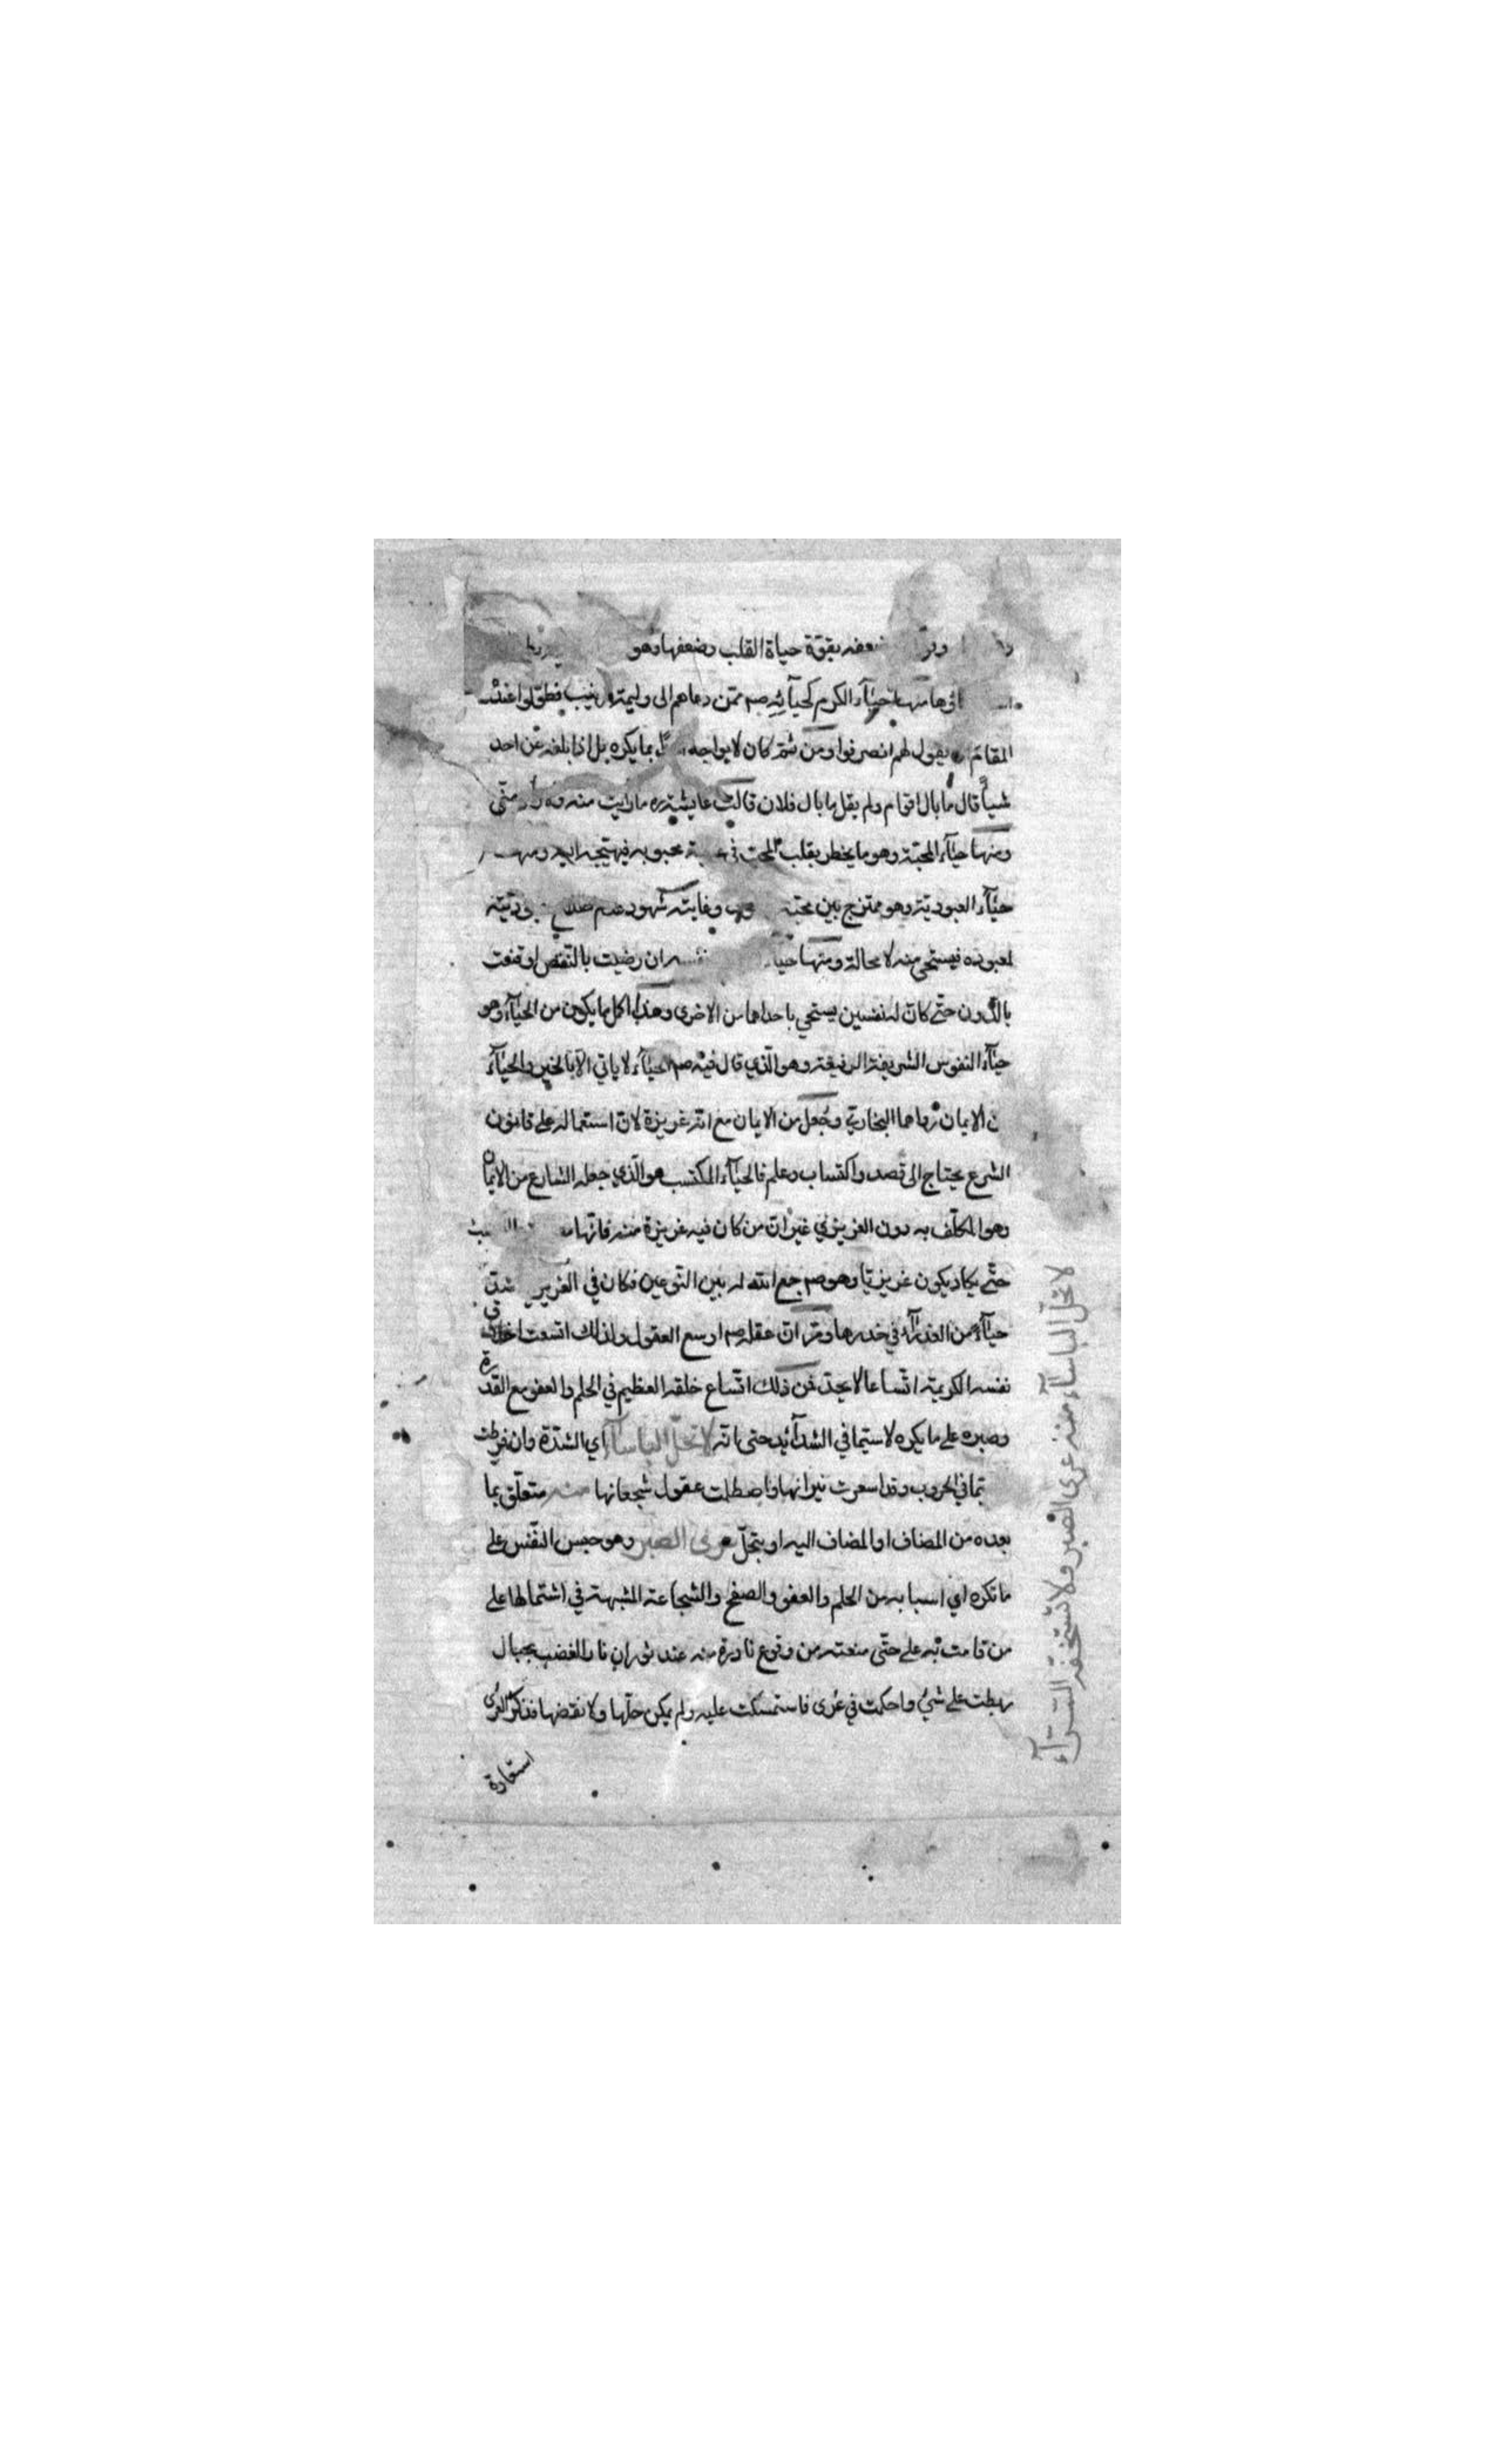 بقوة حياة القلب وضعفها وهو
منها حيآء الكرم كحيآئه صم ممن دعاهم الى وليمة زينب فطولوا عنده
المقام يقول لهم انصرفوا ومن ثم كان لا يواجه بما يكره بل اذا بلغه عن احد
شيأ قال ما بال اقوام ولم يقل ما بال فلان قالت عايشة ره ما رايت منه ولا منى
ومنها حيآء المحبة وهو ما يخطر بقلب المحب في محبوبه فيهيجه اليه ومنها
حيآء العبودية وهو ممتزج بين محبة وخوف وغايته شهود عدم
لمعبوده فيستحي منه لا محالة ومنها حيآء نفسه ان رضيت بالنقص او قنعت
بالدون حتى كان له نفسين يستحي باحداهما من الاخرى وهذا اكمل ما يكون من الحيآء وهو
حيآء النفوس الشريفة الرفيعة وهو الذي قال فيه صم الحيآء لا ياتي الا بالخير والحيآء
من الايمان رواهما البخاري وجعل من الايمان مع انه غريزة لان استعماله على قانون
الشرع يحتاج الى قصد واكتساب وعلم فالحيآء المكتسب هو الذي جعله الشارع من الايمان
وهو المكلف به دون الغريزي غير ان من كان فيه غريزة منه فانها
حتى يكاد يكون غريزيا وهو صم جمع الله له بين النوعين فكان في الغريزي اشد
حيآء من العذرآء في خدرها ومر ان عقله صم اوسع العقول ولذلك اتسعت اخلاق
نفسه الكريمة اتساعا لا يحد فمن ذلك اتساع خلقه العظيم في الحلم والعفو مع القدرة
وصبره على ما يكره لا سيما في الشدآئد حتى انه لا تحل الباسآء اي الشدة وان فرطت
سيما في الحروب وقد اسعرت نيرانها واصطلت عقول شجعانها منه متعلق بما
بعده من المضاف او المضاف اليه او بتحل عرى الصبر وهو حبس النفس على
ما تكره اي اسبابه من الحلم والعفو والصفح والشجاعة المشبهة في اشتمالها على
من قامت به على حتى منعته من وقوع نادرة منه عند ثوران نار الغضب بحبال
ربطت على شئ واحكمت في عرى فاستمسكت عليه ولم يمكن حلها ولا نقضها فذكر العرى
استعارة
لا تحل الباسآء منه عرى الصبر ولا تستخفه السرآء